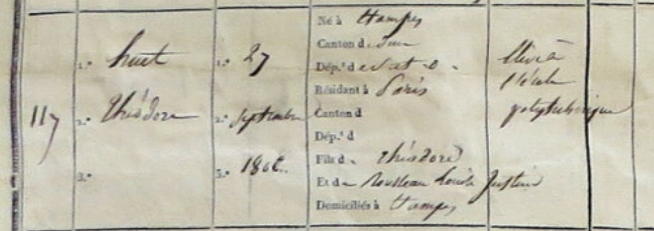 Né à Etampes
Canton d
1.° huet 1.° 27 Dép.t d S et O. Elève à
Résidant à Paris l'école
117 2.° Théodore 2.° Septembre Canton d polytechnique
Dép.t d
Fils de Théodore
3.° 3.° 180
Et de Rousseau Louise Justine
Domiciliés à Etampes